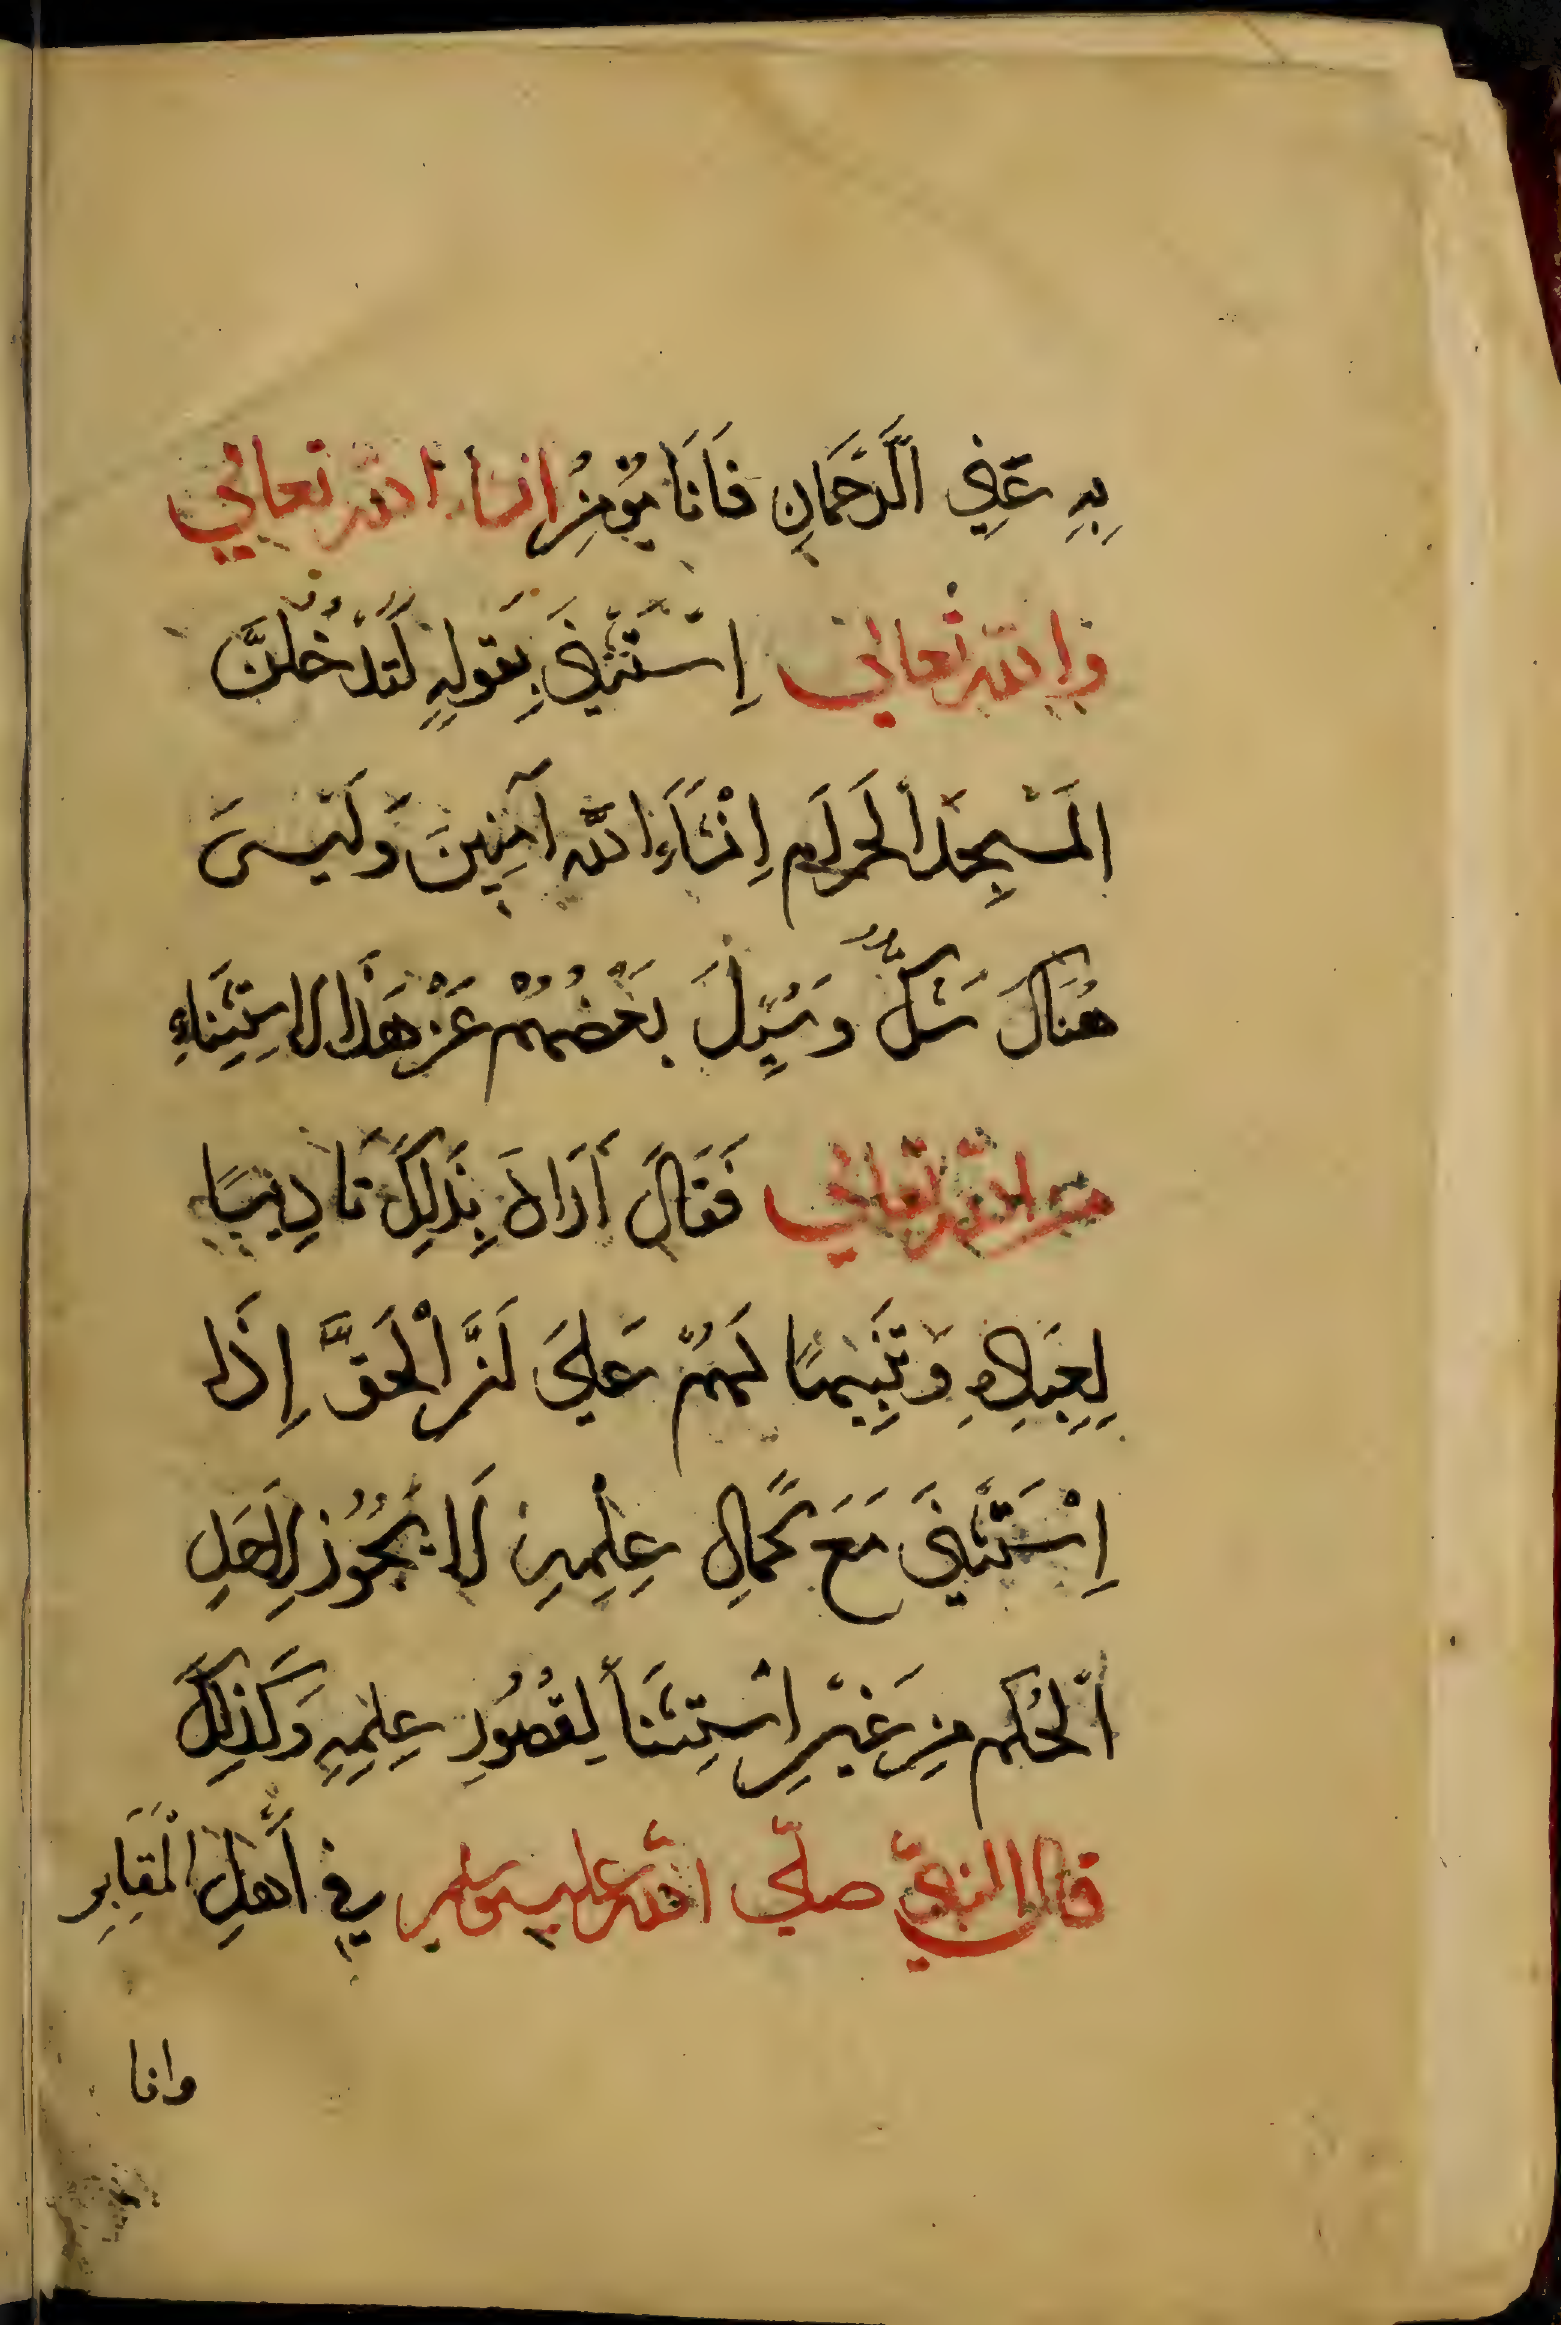 بِهِ عَنِّي الرَّحْمَانِ فَأَنَا مُؤْمِنٌ انشاء الله تعالي
والله تعالي اِسْتَثْنَي بِقَوْلِهِ لَتَدْخُلُنَّ
المَسْجِدَ الحَرَامَ اِنْشَاءَ اللّه آمِنِينَ وَلَيْسَ
هُنَاكَ شَكٌّ وَسُئِلَ بَعْضُهُمْ عَنْ هَذَا الاسْتِثْنَاءِ
من الله تعالي فَقَالَ أَرَادَ بِذَلِكَ تَادِيبًا
لِعِبَادِهِ وَتَنْبِيهًا لَهُمْ عَلَيَ اَنَّ الْحَقَّ إِذَا
اِسْتَثْنَي مَعَ كَمَالِ عِلْمِهِ لَا يَجُوزُ لِاَحَدٍ
الْحُكْم مِنْ غَيْرِ اسْتِثْنَأ لِقُصُورِ عِلْمِهِ وَكَذَلِكَ
قال النبيّ صلّي الله عليه وسلم في أَهْلِ الْمَقَابِرِ
وانا